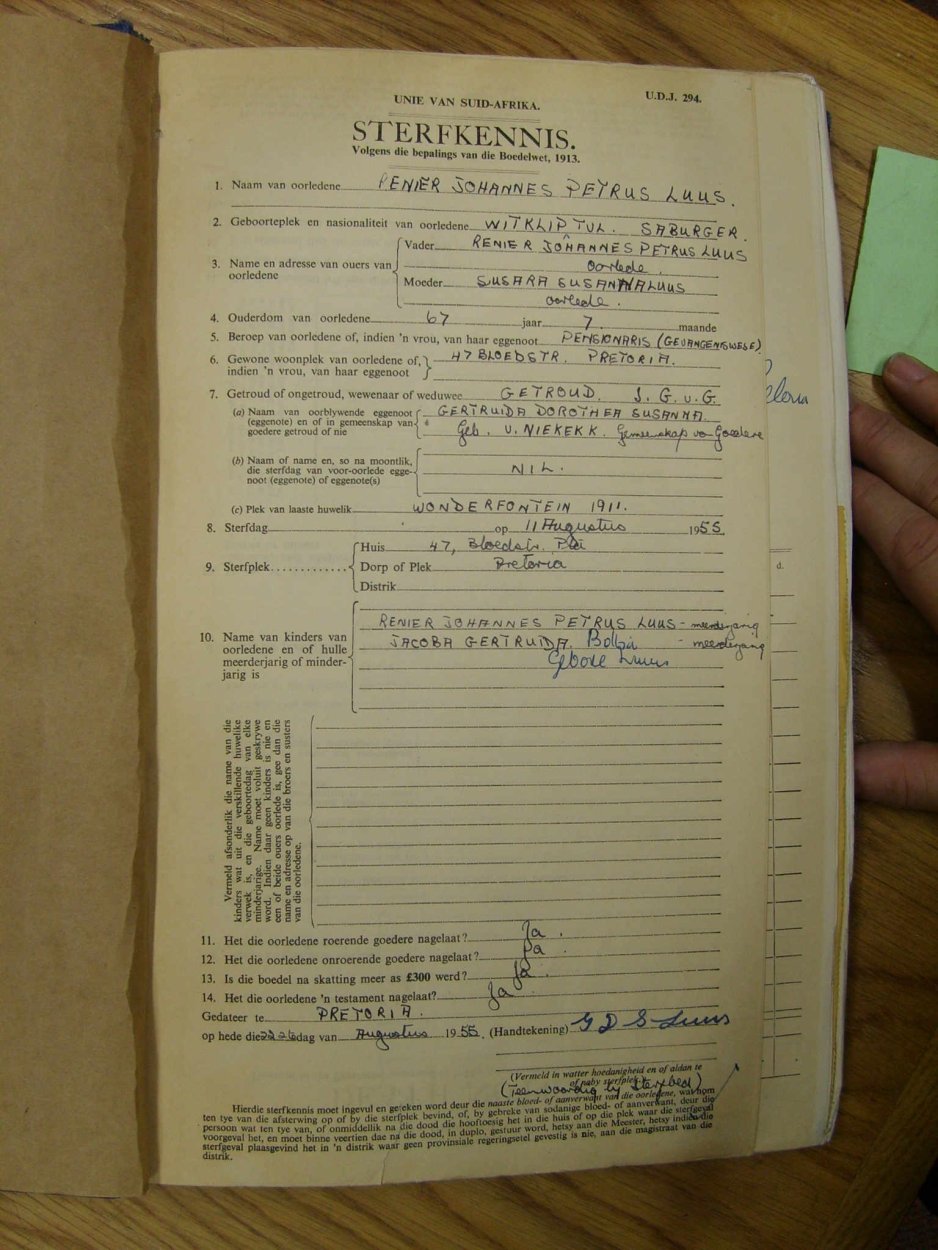 U.D.J. 294.
UNIE VAN SUID-AFRIKA.
STERFKENNIS.
Volgens die bepalings van die Boedelwet, 1913.
1. Naam van oorledene RENIER JOHANNES PETRUS LUUS.
2. Geboorteplek en nasionaliteit van oorledene WITKLIP TUL. SABURGER.
3. Name en adresse van ouers van oorledene
Vader RENIER JOHANNES PETRUS LUUS
oorlede.
Moeder SUSARA SUSANNA LUUS
oorlede.
4. Ouderdom van oorledene 67 jaar 7 maande
5. Beroep van oorledene of, indien 'n vrou, van haar eggenoot PENSIONARIS (GEVANGENISWESE)
6. Gewone woonplek van oorledene of, 47 BLOEDSTR. PRETORIA.
indien 'n vrou, van haar eggenoot
7. Getroud of ongetroud, wewenaar of weduwee GETROUD. I.G.v.G.
(a) Naam van oorblywende eggenoot GERTRUIDA DOROTHEA SUSANNA.
(eggenote) en of in gemeenskap van Geb. v. NIEKEKK. Gemeenskap van Goedere
goedere getroud of nie
(b) Naam of name en, so na moontlik,
die sterfdag van voor-oorlede egge- NIL.
noot (eggenote) of eggenote(s)
(c) Plek van laaste huwelik WONDERFONTEIN 1911.
8. Sterfdag op 11 Augustus 1955.
9. Sterfplek
Huis 47, Bloedstr. Pta
Dorp of Plek Pretoria
Distrik
10. Name van kinders van
oorledene en of hulle
meerderjarig of minder-
jarig is
RENIER JOHANNES PETRUS LUUS - meerderjarig
JACOBA GERTRUIDA - meerderjarig
Gebore Luus
Vermeld afsonderlik die name van die
kinders wat uit die verskillende huwelike
verwek is, en die geboortedag van elke
minderjarige. Name moet voluit geskrywe
word. Indien daar geen kinders is nie en
een of beide ouers oorlede is, gee dan die
name en adresse op van die broers en susters
van die oorledene.
11. Het die oorledene roerende goedere nagelaat? Ja.
12. Het die oorledene onroerende goedere nagelaat? Ja.
13. Is die boedel na skatting meer as £300 werd? Ja.
14. Het die oorledene 'n testament nagelaat? Ja
Gedateer te PRETORIA.
op hede die dag van Augustus 1955. (Handtekening) G D S Luus
(Vermeld in watter hoedanigheid en of aldan te
of naby sterfplek)
(Teenwoordig by Sterfbed)
Hierdie sterfkennis moet ingevul en geteken word deur die naaste bloed- of aanverwant van die oorledene, wat hom
ten tye van die afsterwing op of by die sterfplek bevind, of, by gebreke van sodanige bloed- of aanverwant, deur die
persoon wat ten tye van, of onmiddellik na die dood die hooftoesig het in die huis of op die plek waar die sterfgeval
voorgeval het, en moet binne veertien dae na die dood, in duplo, gestuur word, hetsy aan die Meester, hetsy indien die
sterfgeval plaasgevind het in 'n distrik waar geen provinsiale regeringsetel gevestig is nie, aan die magistraat van die
distrik.
d.